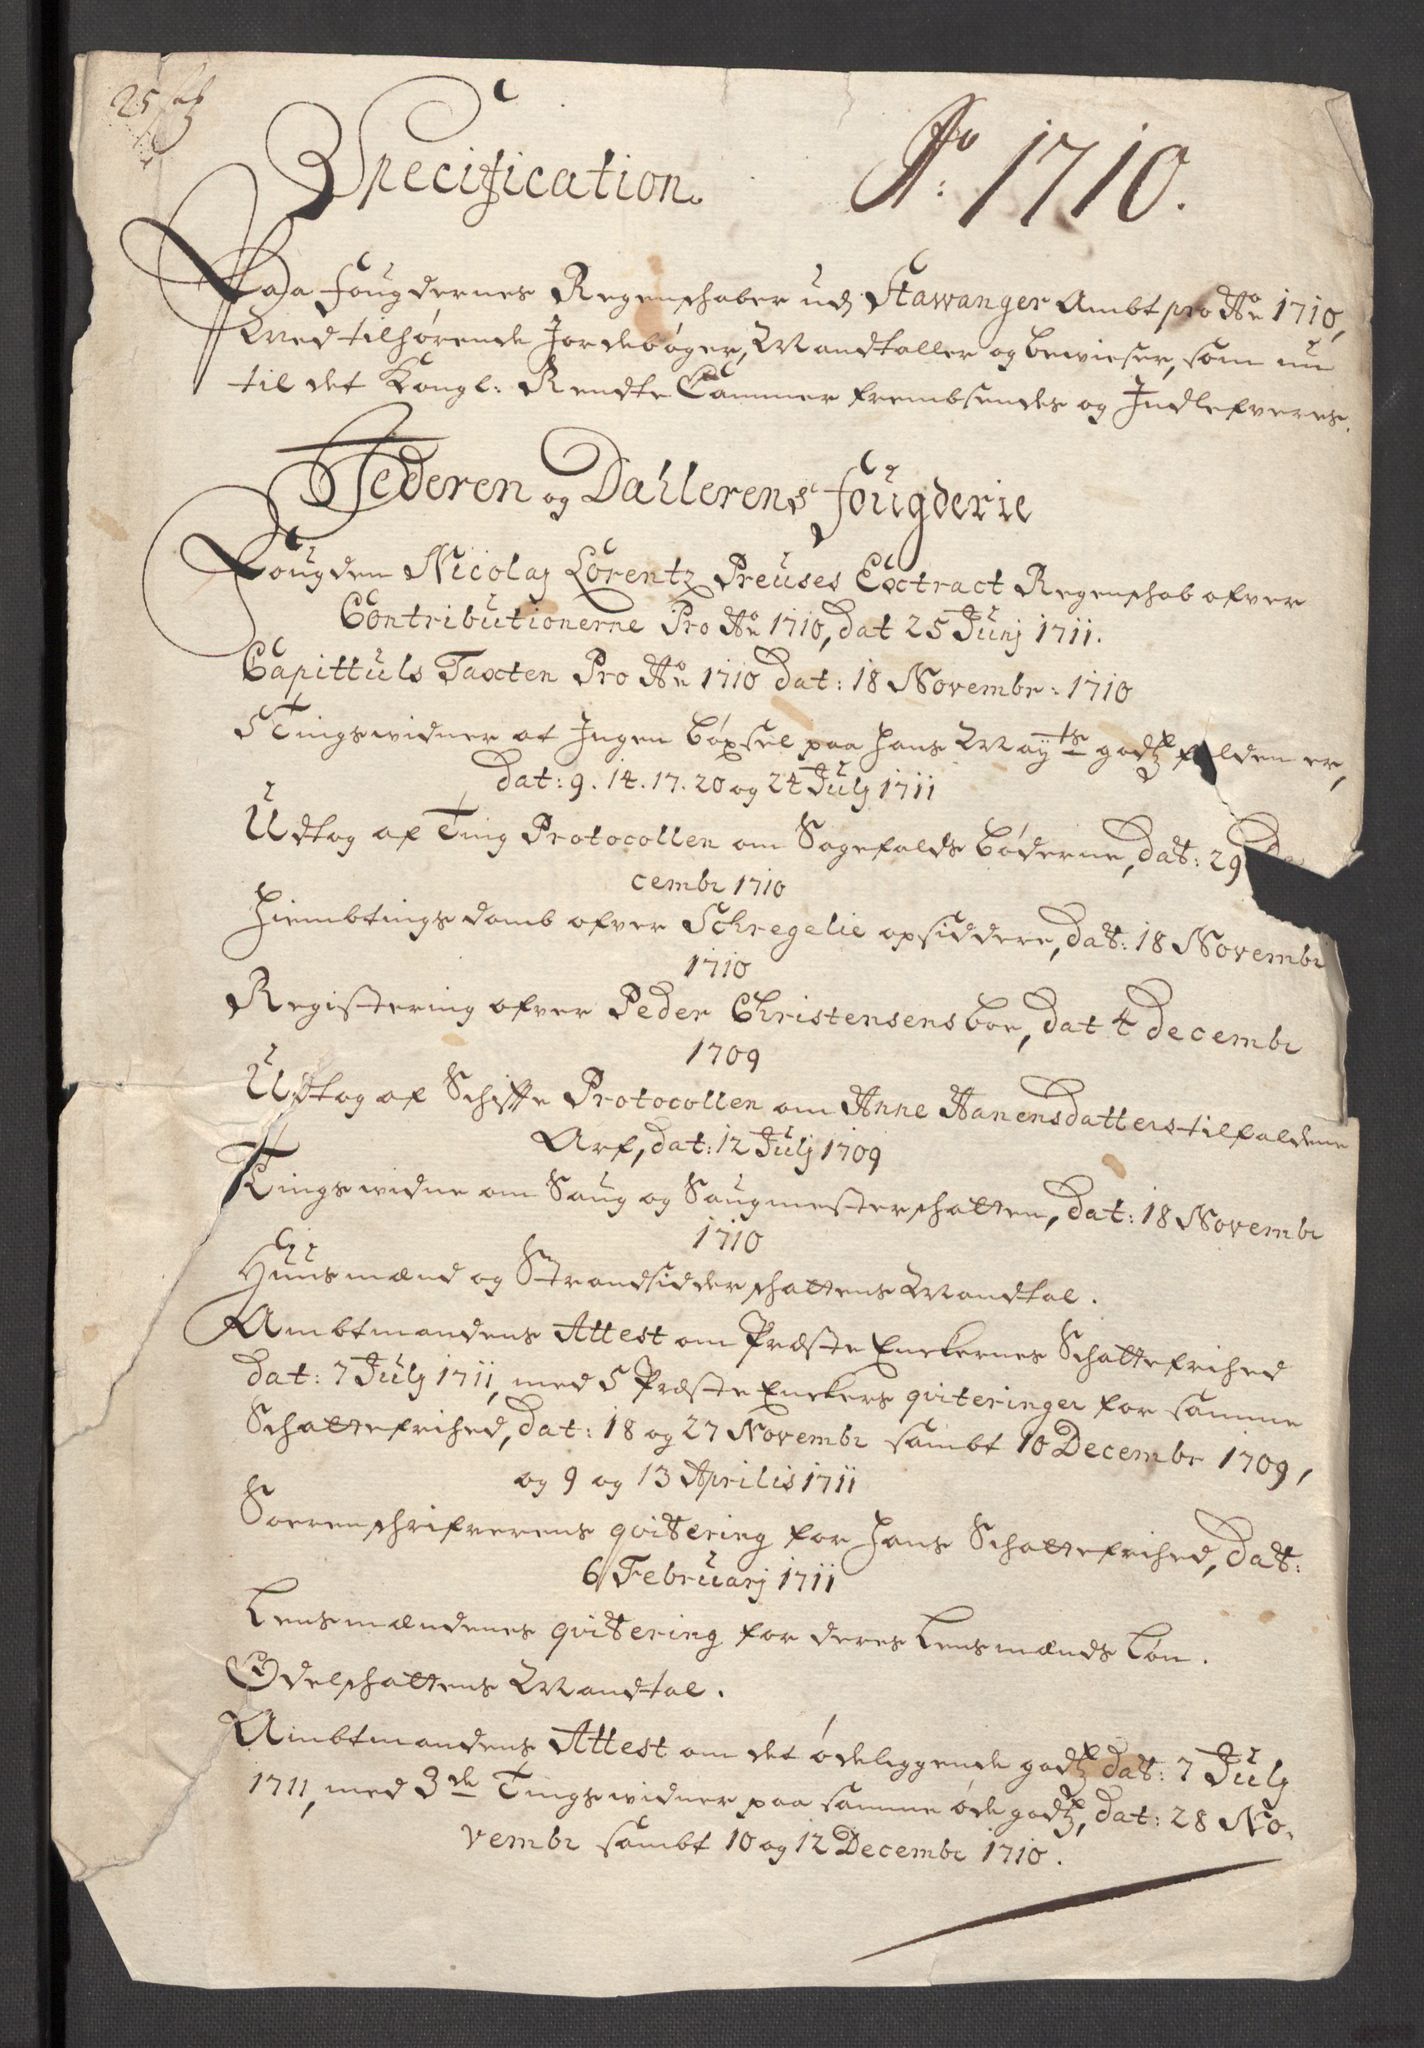 Specification. Ao: 1710.
Paa fougdernes Regenschaber udj Stawanger Ambt pro Ao 1710,
Med tilhørende Jordebøger, Mandtaller og bewiser, som nu
til det Kongl: Rendte Cammer frembsendes og Indlefveres.
Jederen og Dahlerens fougderie
Fougden Nicolaj Lorentz Preuses Extract Regenschab ofver
Contributionerne Pro Ao 1710, dat 25 Junj 1711.
Capittuls Taxten Pro Ao 1710 dat: 18 Novembr: 1710
5 Tingswidner at Ingen bøxsel paa hans Mayts godtz falden er,
dat: 9. 14. 17. 20 og 24 Julj 1711
Udtog af Ting Protocollen om Sagefalds bøderne, dat: 29 De
cembr 1710
Hiembtings domb ofver Schregelie opsiddere, dat: 18 Novembr
1710
Registering ofver Peder Christensens boe, dat 4 Decembr
1709
Udtog af Schiffte Protocollen om Anne Hanensdatters tilfaldene
Arf, dat: 12 Julj 1709
Tingswidne om Saug og Saugmesterschatten, dat: 18 Novembr
1710
Huusmænd og Strandsidder schattens Mandtal.
Ambtmandens Attest om Præste Enckernes Schattefrihed
dat: 7 Julj 1711, med 5 Præste Enckers qviteringer for samme
Schattefrihed, dat: 18 og 27 Novembr sambt 10 Decembr 1709,
og 9 og 13 Aprilis 1711
Sorenschrifverens qvitering for hans Schattefrihed, dat:
6 Februarj 1711
Lensmændenes qvitering for deres Lensmands løn.
Odelschattens Mandtal.
Ambtmandens Attest om det ødeliggende godtz dat: 7 Julj
1711, med 3de Tingswidner paa samme øde godtz, dat: 28 No-
vembr sambt 10 og 12 Decembr 1710.